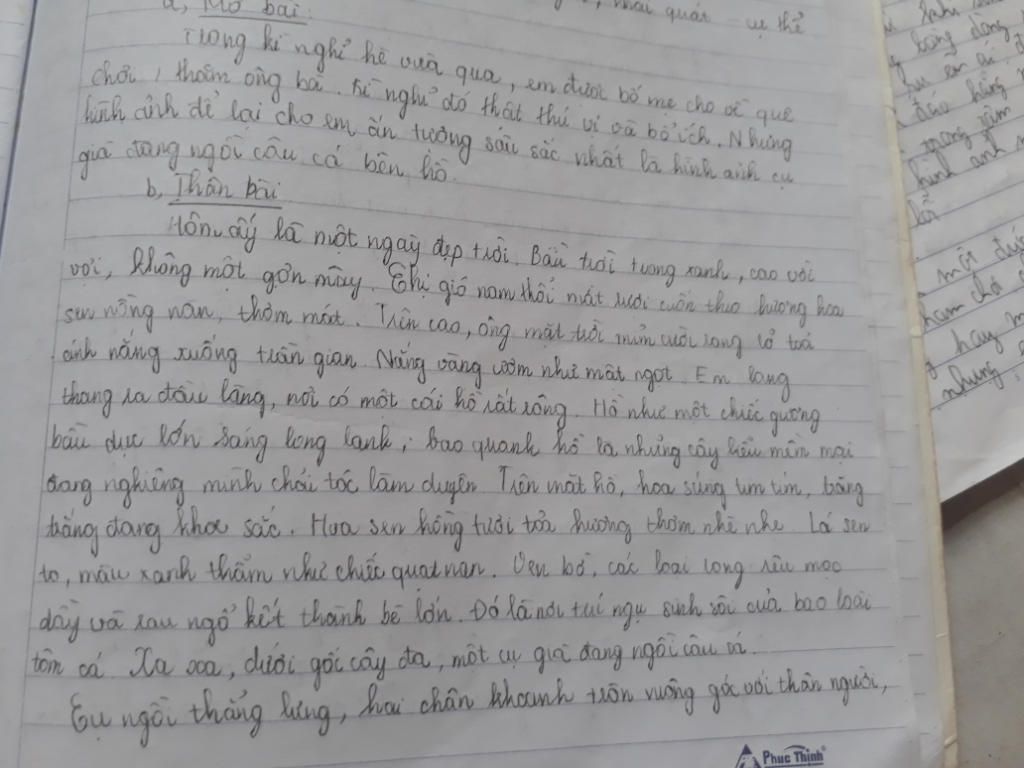 a, Mở bài:
khái quát - cụ thể
Trong kì nghỉ hè vừa qua, em được bố mẹ cho về quê
chơi, thăm ông bà. Kì nghỉ đó thật thú vị và bổ ích. Nhưng
hình ảnh để lại cho em ấn tượng sâu sắc nhất là hình ảnh cụ
già đang ngồi câu cá bên hồ.
b, Thân bài
Hôm ấy là một ngày đẹp trời. Bầu trời trong xanh, cao vời
vợi, không một gợn mây. Chị gió nam thổi mát rượi cuốn theo hương hoa
sen nồng nàn, thơm mát. Trên cao, ông mặt trời mỉm cười rạng rỡ toả
ánh nắng xuống trần gian. Nắng vàng ươm như mật ngọt. Em lang
thang ra đầu làng, nơi có một cái hồ rất rộng. Hồ như một chiếc gương
bầu dục lớn sáng long lanh, bao quanh hồ là những cây liễu mềm mại
đang nghiêng mình chải tóc làm duyên. Trên mặt hồ, hoa súng tim tím, trăng
trắng đang khoe sắc. Hoa sen hồng tươi toả hương thơm nhè nhẹ. Lá sen
to, màu xanh thẫm như chiếc quạt nan. Ven bờ, các loại rong rêu mọc
dày và rau ngổ kết thành bè lớn. Đó là nơi trú ngụ sinh sôi của bao loài
tôm cá. Xa xa, dưới gốc cây đa, một cụ già đang ngồi câu cá.
Cụ ngồi thẳng lưng, hai chân khoanh tròn vuông góc với thân người,
Phuc Thinh